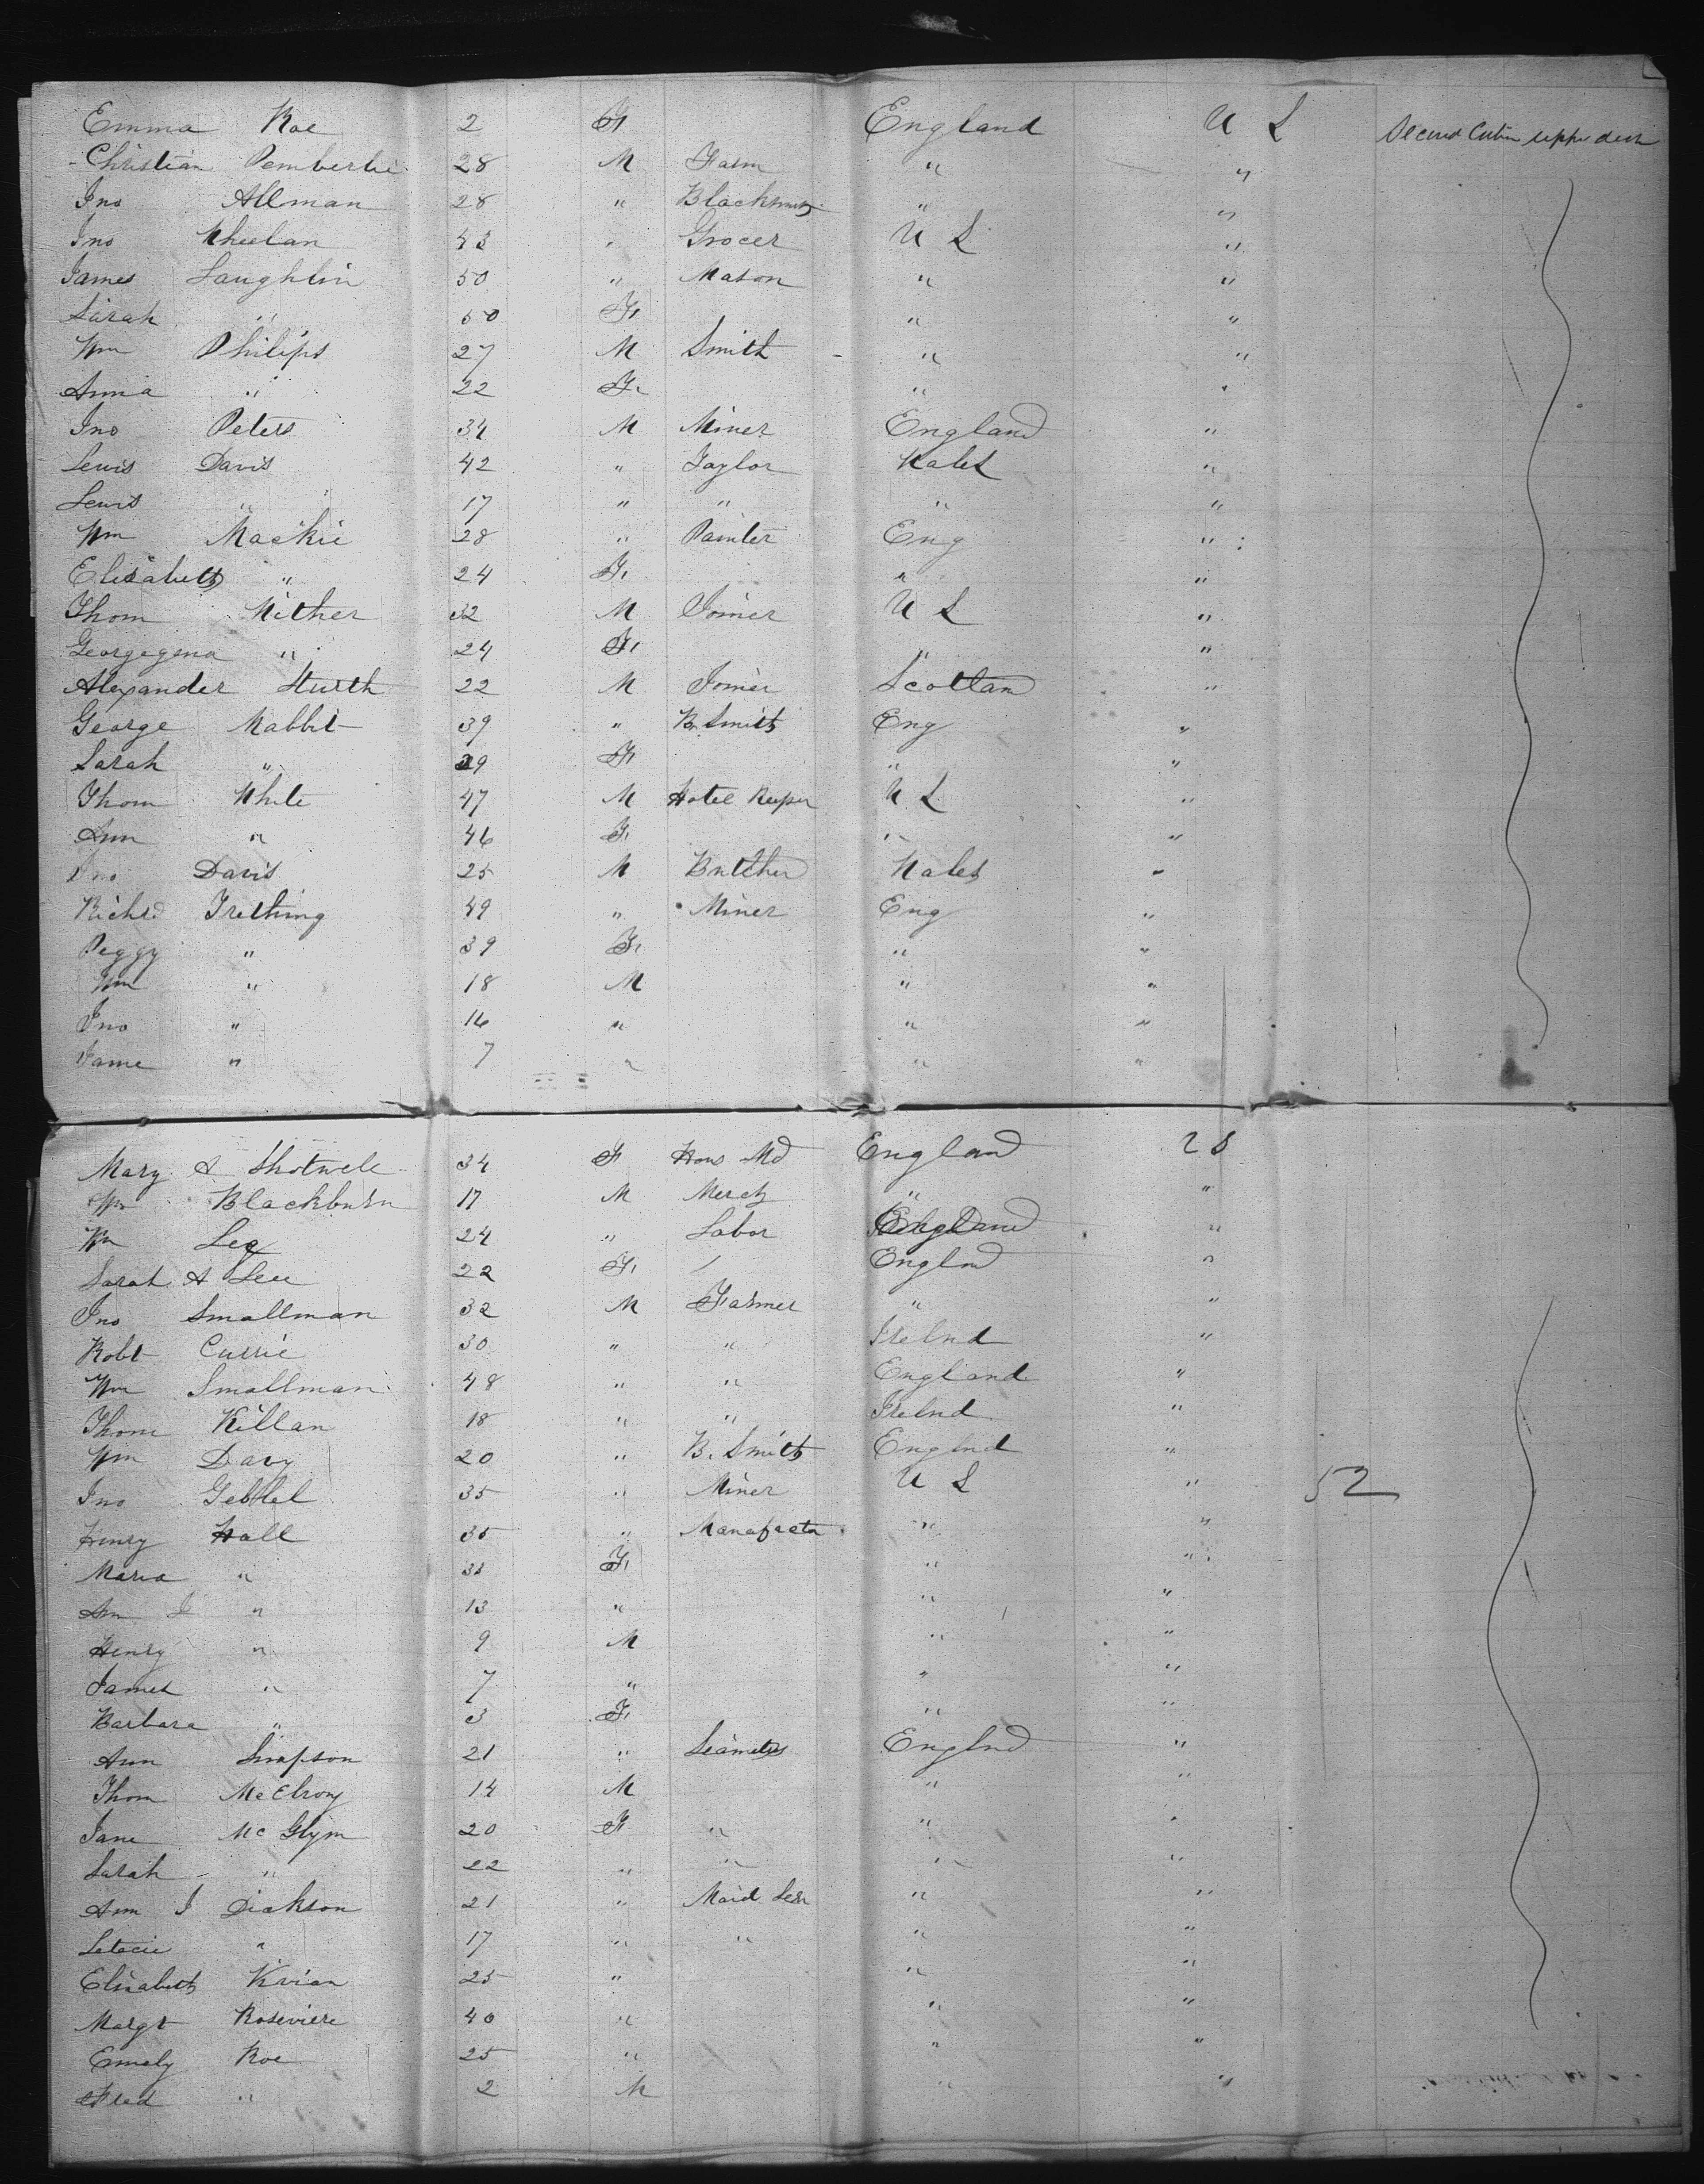 Emma Roe 2 F England U S Second Cabin upper deck
Christian 28 M Farm " "
Jno Allman 28 " Blacksmith " "
Jno Wheelan 43 " Grocer U S "
James Laughlin 50 " Mason " "
Sarah " 50 F " "
Wm Philips 27 M Smith " "
Anna " 22 F " "
Jno Peters 34 M Miner England "
Lewis Davis 42 " Taylor Wales "
Lewis " 17 " " " "
Wm Mackie 28 " Painter Eng "
Elisabeth " 24 F " "
Thom Wither 32 M Joiner U S "
Georgegena " 24 F " "
Alexander 22 M Joiner Scotland "
George Mabbit 39 " B Smith Eng "
Sarah " 29 F " "
Thom White 47 M Hotel Keeper U S "
Ann " 46 F " "
Jno Davis 25 M Butcher Wales "
Richd Trething 49 " Miner Eng "
Peggy " 39 F " "
Wm " 18 M " "
Jno " 16 " " "
Jame " 7 " " "
Mary A Shotwell 34 F Hous Md England U S
Wm Blackburn 17 M Merch " "
Wm Lee 24 " Labor England "
Sarah A Lee 22 F Englnd "
Jno Smallman 32 M Farmer " "
Robt Currie 30 " " Irelnd "
Wm Smallman 48 " " England "
Thom Killan 18 " " Irelnd "
Wm Davy 20 " B. Smith Englnd "
Jno 35 " Miner U S " 52
Henry Hall 35 " Manafactr " "
Maria " F " "
An J " 13 " " "
Henry " 9 M " "
James " 7 " " "
Barbara " 3 F " "
Ann Simpson 21 " Englnd "
Thom McElroy 14 M " "
Jane Mc Glym 20 F " " "
Sarah " 22 " " " "
Ann J Dickson 21 " Maid Ser " "
Letecie " 17 " " " "
Elisabeth Vivian 25 " " "
Margt Roseviere 40 " " "
Emely Roe 25 " " "
Fred " 2 M " "